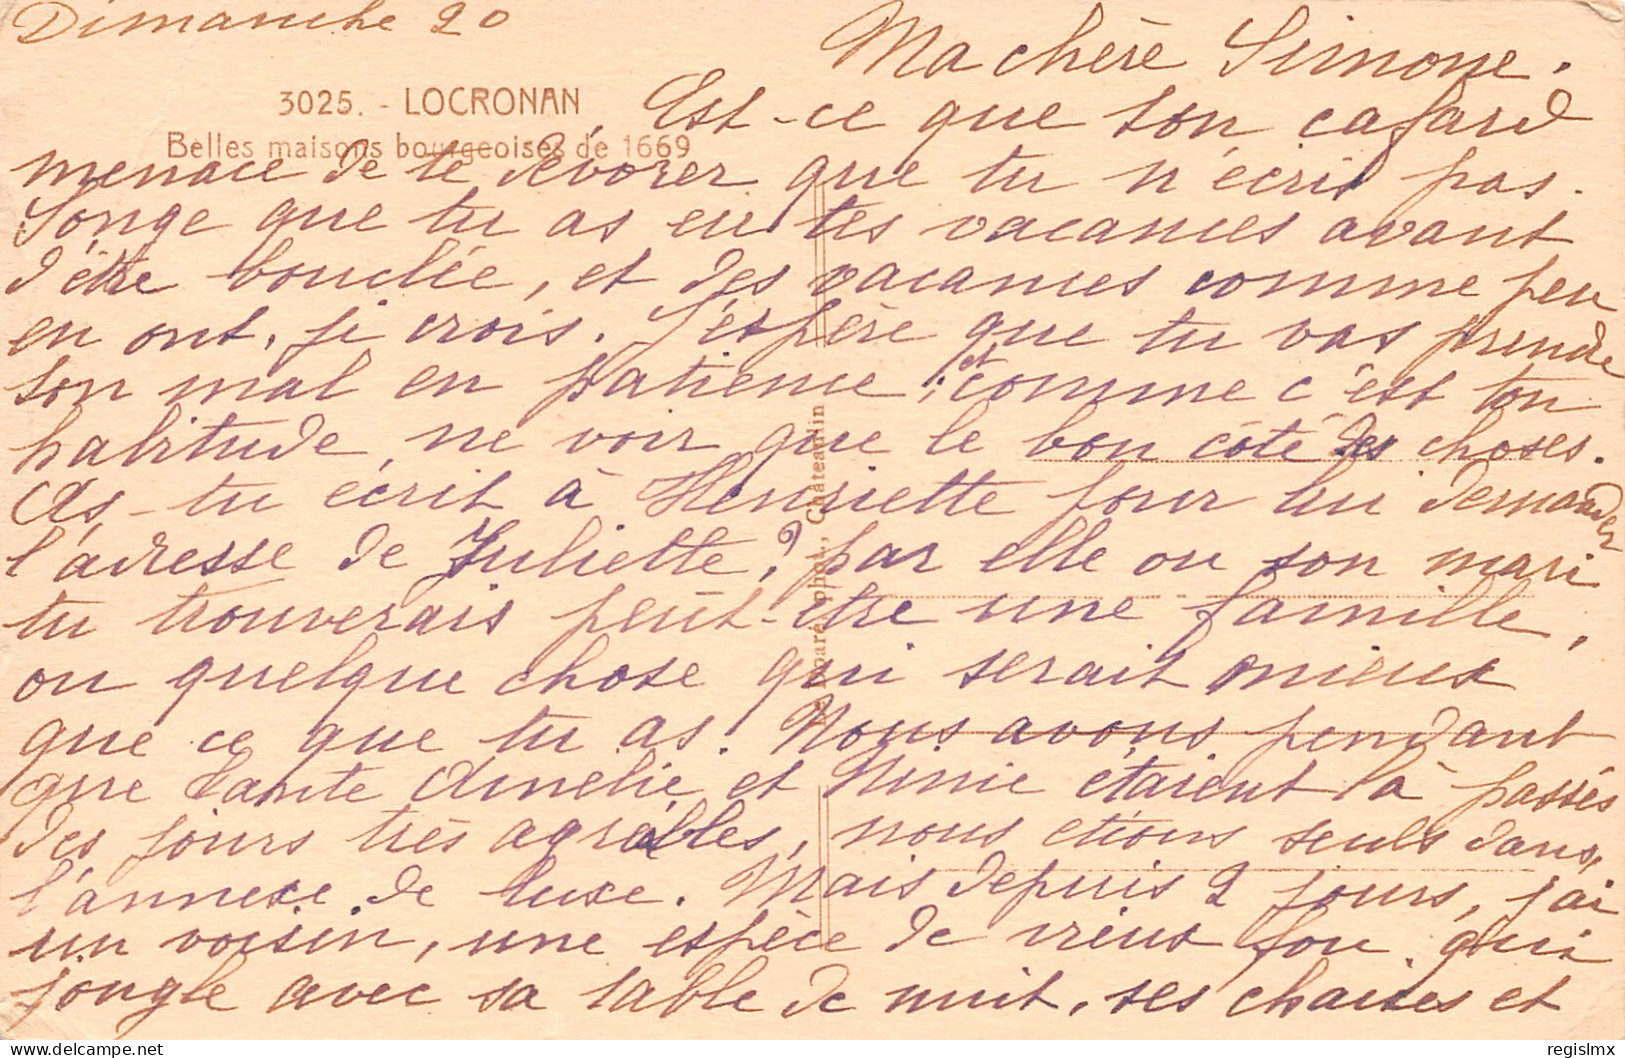 Dimanche 20
Ma chère Simone.
3025. - LOCRONAN
Belles maisons bourgeoises de 1669
Est-ce que ton cafard
menace de te dévorer que tu n'écris pas.
Songe que tu as eu tes vacances avant
d'être bouclée, et des vacances comme peu
en ont, je crois. J'espère que tu vas prendre
ton mal en patience ; et comme c'est ton
habitude, ne voir que le bon côté des choses.
As-tu écrit à Henriette pour lui demander
l'adresse de Juliette ? par elle ou son mari
tu trouverais peut-être une famille,
ou quelque chose qui serait mieux
que ce que tu as. Nous avons pendant
que tante Amélie et Ninie étaient là passés
des jours très agréables, nous étions seuls dans
l'annexe de luxe. Mais depuis 2 jours, j'ai
un voisin, une espèce de vieux fou qui
jongle avec sa table de nuit, ses chaises et
Le Doaré, phot., Châteaulin
regislmx